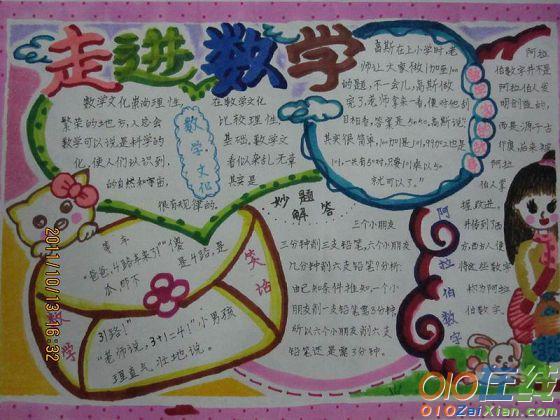 走进数学
数学文化崇尚理性,
繁荣的地方,人总会
数学可以说是科学的
化,使人们认识到,
的自然和宇宙,
很有规律的.
数学文化
在数学文化
比较理性,
基础,数学文
看似杂乱无章
其实是
高斯在上小学时,老
师让大家做1加至100
的题,不一会儿,高斯做
完了,老师拿来一看,便对他刮
目相看,答案是5050,高斯说:"
其实很简单,100加1是101,99加2也是
101,一共有50对,只要101乘以50
就可以了."
阿拉
伯数字并不是
阿拉伯人发
明创造的,
而是源于古
印度,后来被
阿拉
伯人掌
握、改进,
并传到了西
方,西方人便
将这些数字
称为阿拉
伯数字.
阿拉伯数字
妙题
解答
三个小朋友
三分钟削三支铅笔,六个小朋友
几分钟削六支铅笔?分析:
由已知条件推知,一个小
朋友削一支铅笔需3分钟,
所以六个小朋友削六支
铅笔还是需3分钟.
等车
"爸爸,4路车来了!""傻
瓜,那不是4路,是
31路!"
"老师说,3+1=4!"小男孩
理直气壮地说.
数学
笑话
2011/10/13 16:32
010在线
010ZaiXian.com